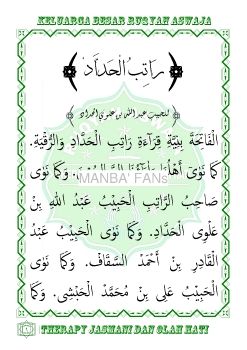 KELUARGA BESAR RUQYAH ASWAJA
رَاتِبُ الْحَدَّادِ
للحبيب عبد الله بن علوي الحداد
الْفَاتِحَةَ بِنِيَّةِ قِرَاءَةِ رَاتِبِ الْحَدَّادِ وَالرُّقْيَةِ.
كَمَا نَوَى أَهْلُنَا وَكَمَا نَوَى
MANBA' FANs
صَاحِبُ الرَّاتِبِ الْحَبِيْبُ عَبْدُ اللهِ بِنْ
عَلْوِى الْحَدَّادِ. وَكَمَا نَوَى الْحَبِيْبُ عَبْدُ
الْقَادِرِ بِنْ أَحْمَدَ السَّقَافِ. وَكَمَا نَوَى
الْحَبِيْبُ عَلِى بِنْ مُحَمَّدْ الْحَبْشِى. وَكَمَا
THERAPY JASMANI DAN OLAH HATI